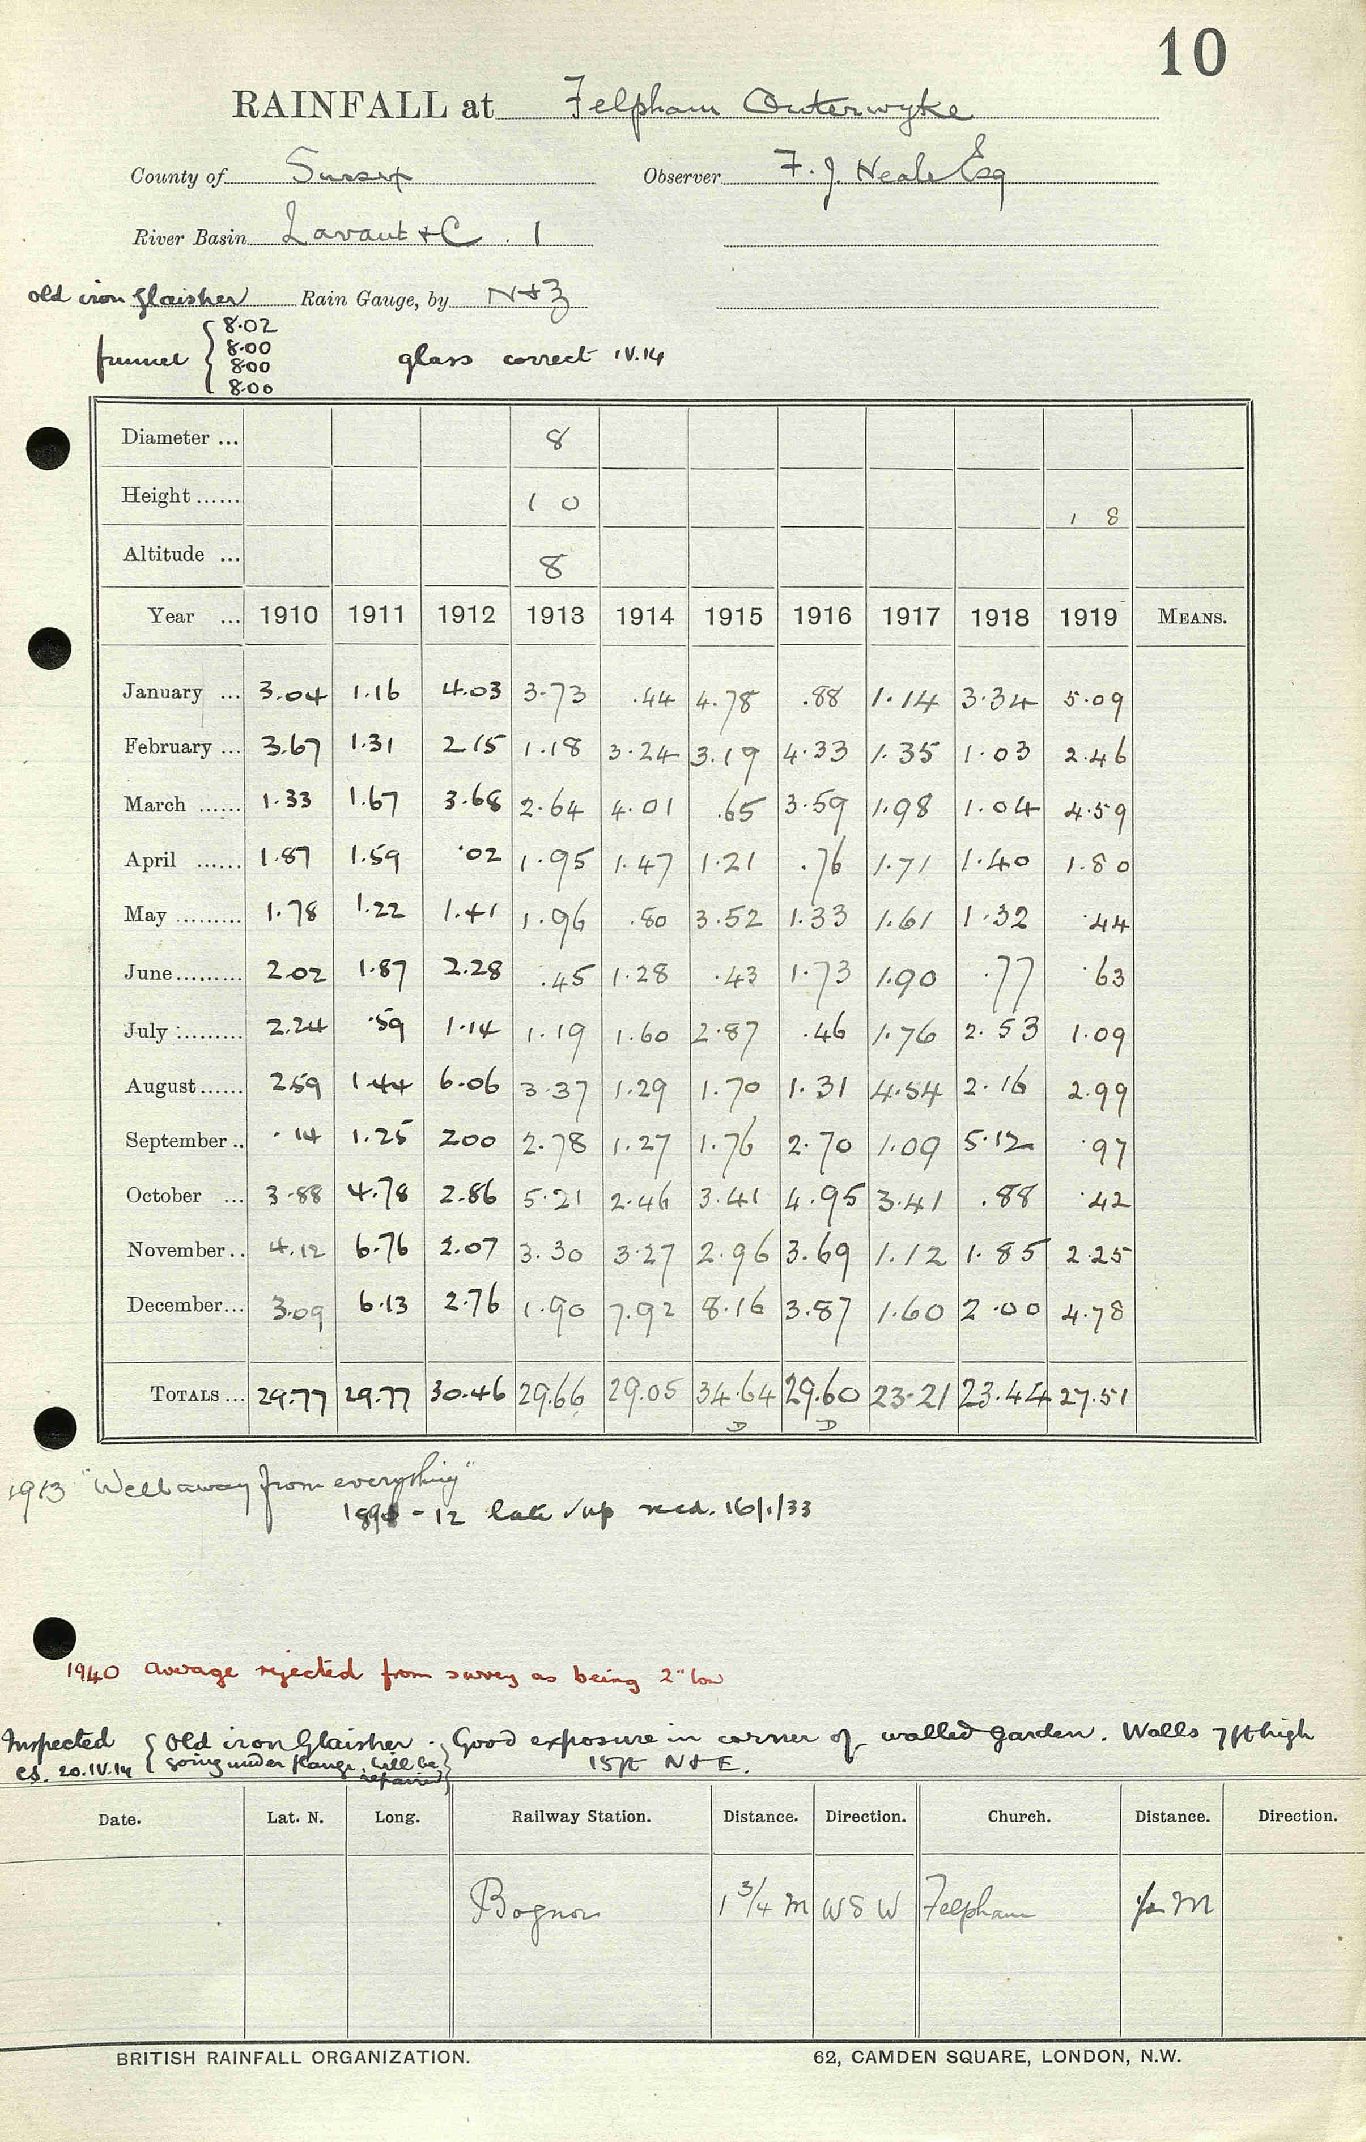 10
RAINFALL at Felpham Outerwyke
County of Sussex Observer F. J. Neale Esq
River Basin Lavant & C. 1
old iron Glaisher Rain Gauge, by N & Z
funnel { 8.02 8.00 8.00 8.00 glass correct IV.14
Diameter ... 8
Height ...... 1 0 1 8
Altitude ... 8
Year ... 1910 1911 1912 1913 1914 1915 1916 1917 1918 1919 MEANS.
January ... 3.04 1.16 4.03 3.73 .44 4.78 .88 1.14 3.34 5.09
February ... 3.67 1.31 2.15 1.18 3.24 3.19 4.33 1.35 1.03 2.46
March ...... 1.33 1.67 3.68 2.64 4.01 .65 3.59 1.98 1.04 4.59
April ...... 1.87 1.59 .02 1.95 1.47 1.21 .76 1.71 1.40 1.80
May ......... 1.78 1.22 1.41 1.96 .80 3.52 1.33 1.61 1.32 .44
June ......... 2.02 1.87 2.28 .45 1.28 .43 1.73 1.90 .77 .63
July ......... 2.24 .59 1.14 1.19 1.60 2.87 .46 1.76 2.53 1.09
August ...... 2.59 1.44 6.06 3.37 1.29 1.70 1.31 4.54 2.16 2.99
September .. .14 1.25 2.00 2.78 1.27 1.76 2.70 1.09 5.12 .97
October ... 3.88 4.78 2.86 5.21 2.46 3.41 4.95 3.41 .88 .42
November .. 4.12 6.76 2.07 3.30 3.27 2.96 3.69 1.12 1.85 2.25
December ... 3.09 6.13 2.76 1.90 7.92 8.16 3.87 1.60 2.00 4.78
TOTALS ... 29.77 29.77 30.46 29.66 29.05 34.64 29.60 23.21 23.44 27.51
D D
1913 "Well away from everything"
- 12 late recd. 16/1/33
1940 average rejected from survey as being 2" low
Inspected { Old iron Glaisher. } Good exposure in corner of walled garden. Walls 7ft high
CS. 20.IV.14 going under flange, will be 15ft N & E.
repaired
Date. Lat. N. Long. Railway Station. Distance. Direction. Church. Distance. Direction.
Bognor 1 3/4 M W S W Felpham 1/2 M
BRITISH RAINFALL ORGANIZATION. 62, CAMDEN SQUARE, LONDON, N.W.